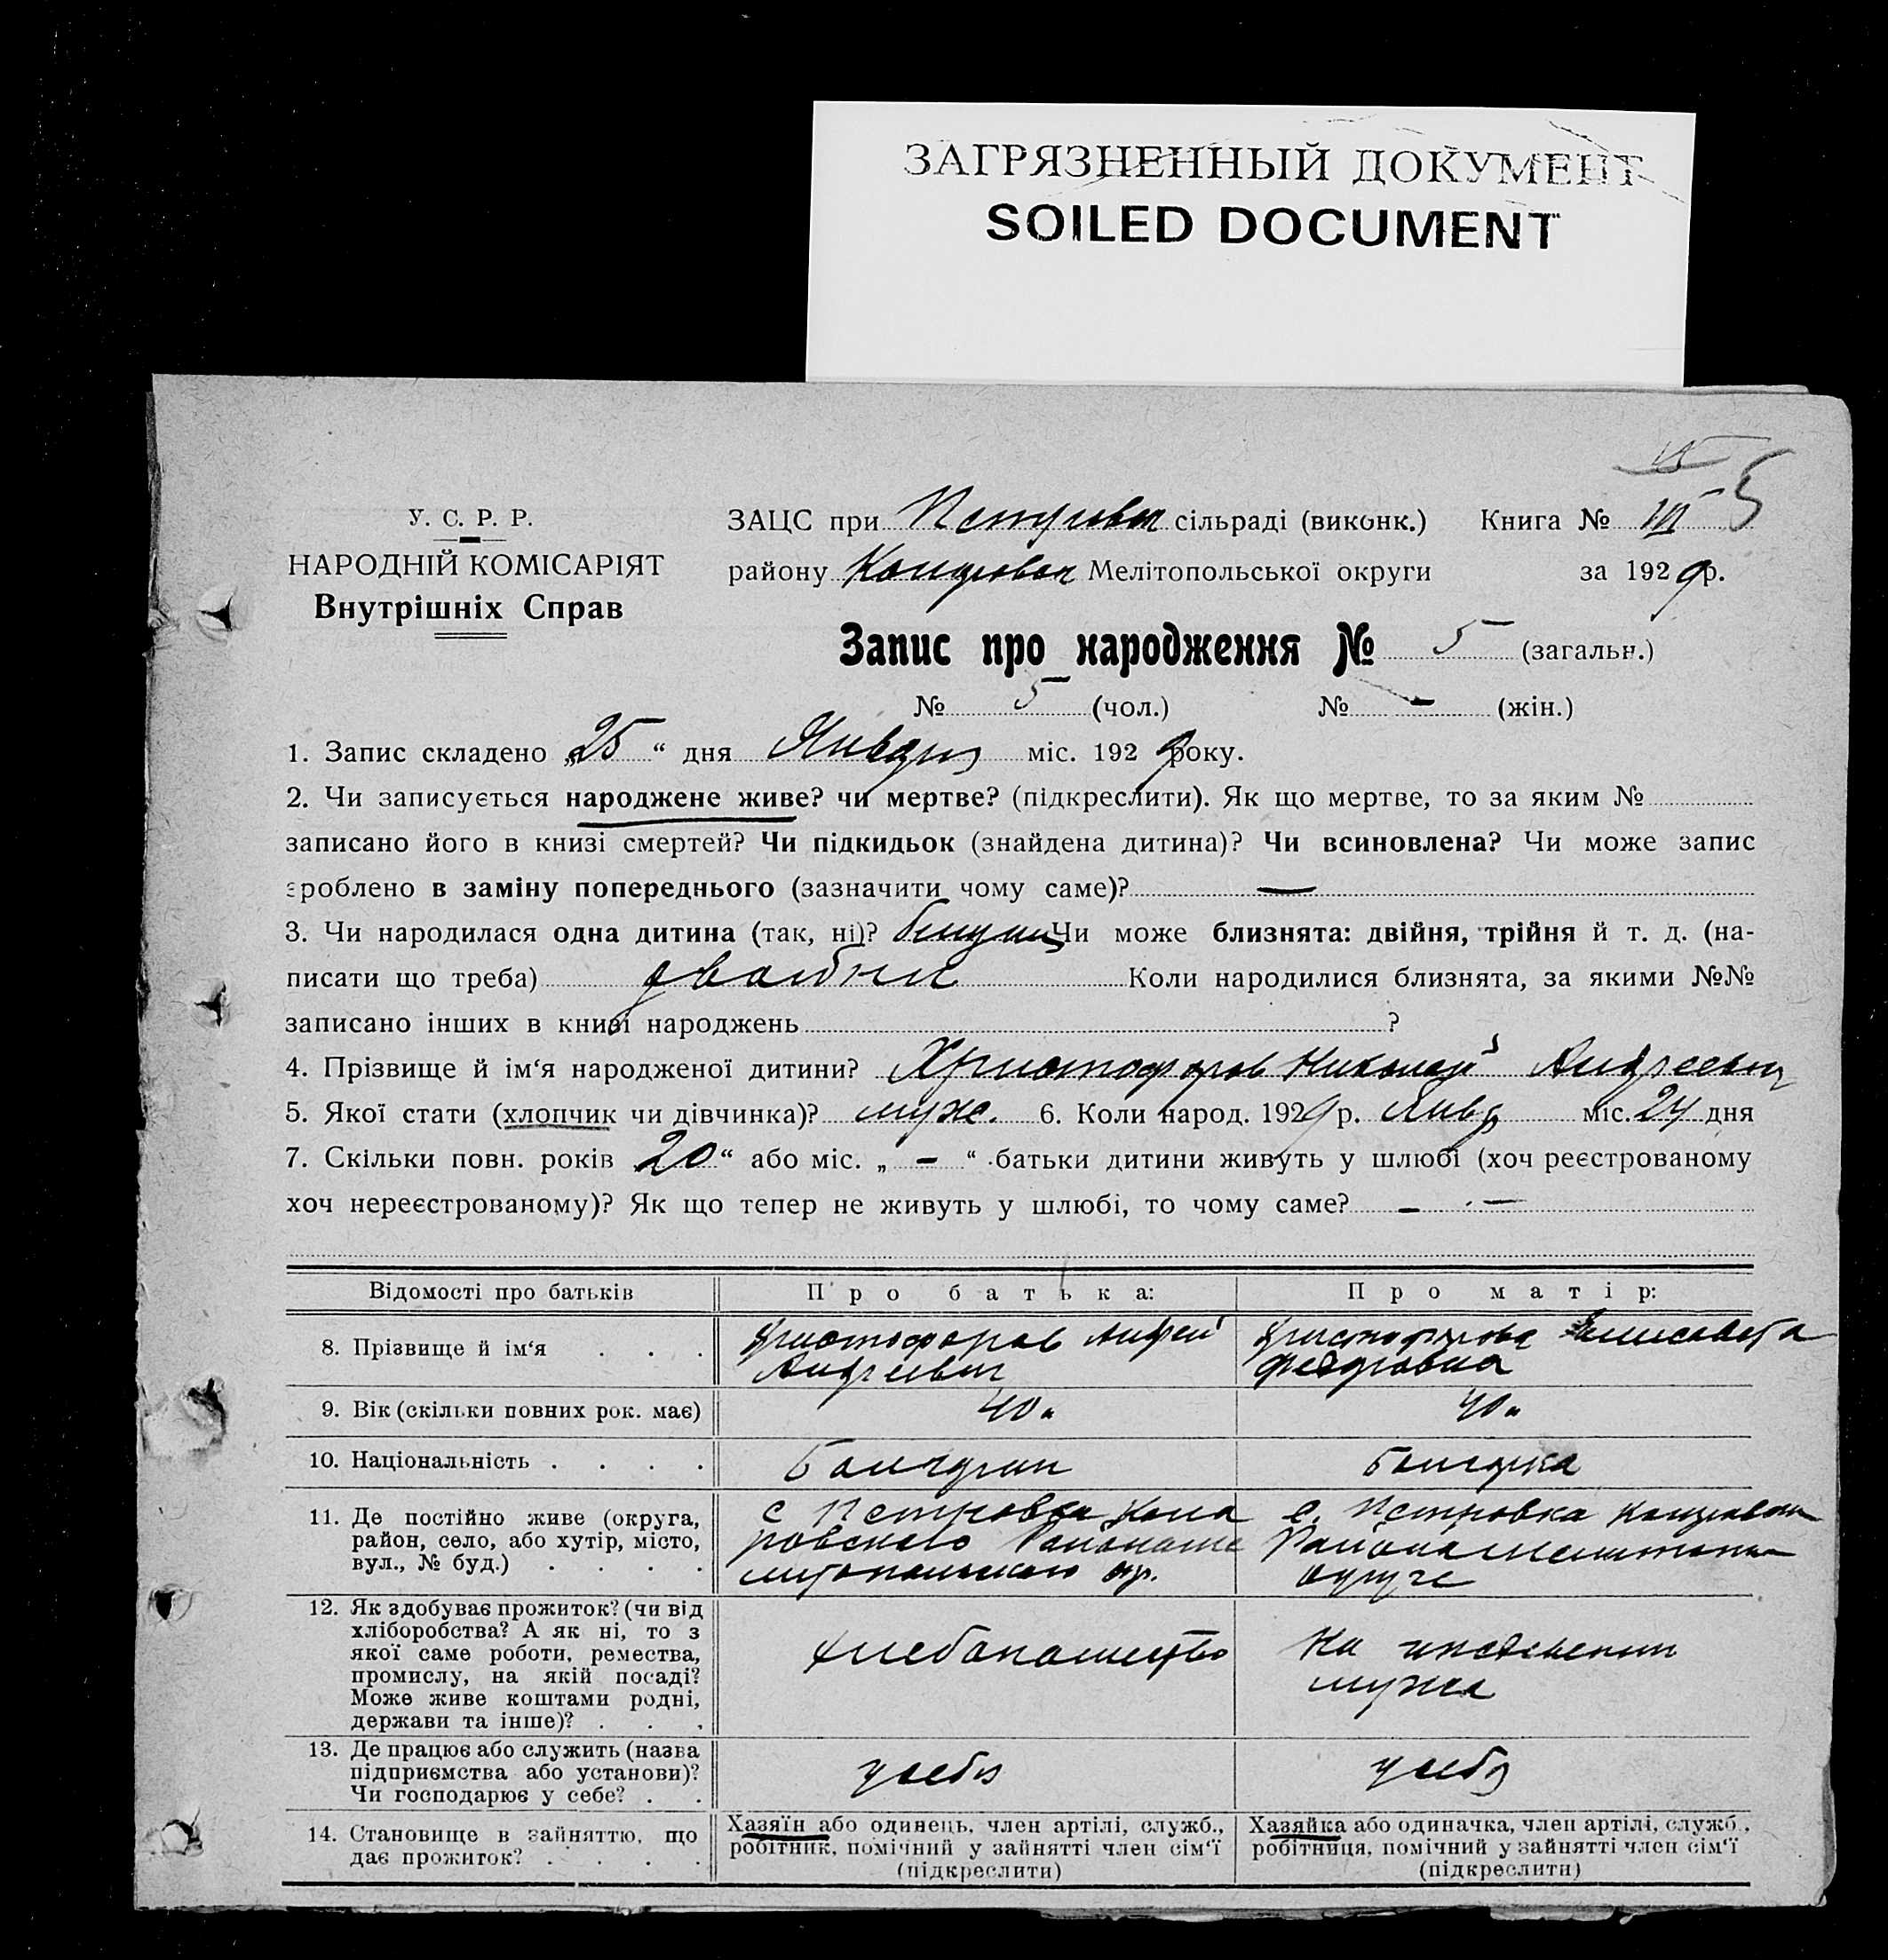 ЗАГРЯЗНЕННЫЙ ДОКУМЕНТ
SOILED DOCUMENT
У. С. Р. Р.
НАРОДНІЙ КОМІСАРІЯТ
Внутрішніх Справ
ЗАЦС при сільраді (виконк.) Книга № III 5
району Мелітопольської округи за 1929 р.
Запис про народження № 5 (загальн.)
№ 5 (чол.) № — (жін.)
1. Запис складено „25“ дня Января міс. 1929 року.
2. Чи записується народжене живе? чи мертве? (підкреслити). Як що мертве, то за яким №
записано його в книзі смертей? Чи підкидьок (знайдена дитина)? Чи всиновлена? Чи може запис
зроблено в заміну попереднього (зазначити чому саме)? —
3. Чи народилася одна дитина (так, ні)? Чи може близнята: двійня, трійня й т. д. (на-
писати що треба) двойни Коли народилися близнята, за якими №№
записано інших в книзі народжень ?
4. Прізвище й ім‘я народженої дитини? Христофоров Николай Андреевич
5. Якої стати (хлопчик чи дівчинка)? муж. 6. Коли народ. 1929 р. Янв міс. 24 дня
7. Скільки повн. років „20“ або міс. „ — “ батьки дитини живуть у шлюбі (хоч реєстрованому
хоч нереєстрованому)? Як що тепер не живуть у шлюбі, то чому саме? — —
Відомості про батьків Про батька: Про матір:
8. Прізвище й ім‘я . . . Христофоров Андрей Христофорова Елисавета
Андреевич Федоровна
9. Вік (скільки повних рок. має) 40 40
10. Національність . . . . Болгарин Болгарка
11. Де постійно живе (округа, с Петровка Кола с. Петровка
район, село, або хутір, місто, ровского Района Ме Района Мелитоп
вул., № буд.) . . . . литопольского окр. округе
12. Як здобуває прожиток? (чи від
хліборобства? А як ні, то з
якої саме роботи, ремества, хлебопашество На иждевении
промислу, на якій посаді? мужа
Може живе коштами родні,
держави та інше)? . . .
13. Де працює або служить (назва
підприємства або установи)? у себя у себя
Чи господарює у себе? . .
14. Становище в зайняттю, що Хазяїн або одинець, член артілі, служб., Хазяйка або одиначка, член артілі, служб.,
дає прожиток? . . . . робітник, помічний у зайнятті член сім‘ї робітниця, помічний у зайнятті член сім‘ї
(підкреслити) (підкреслити)